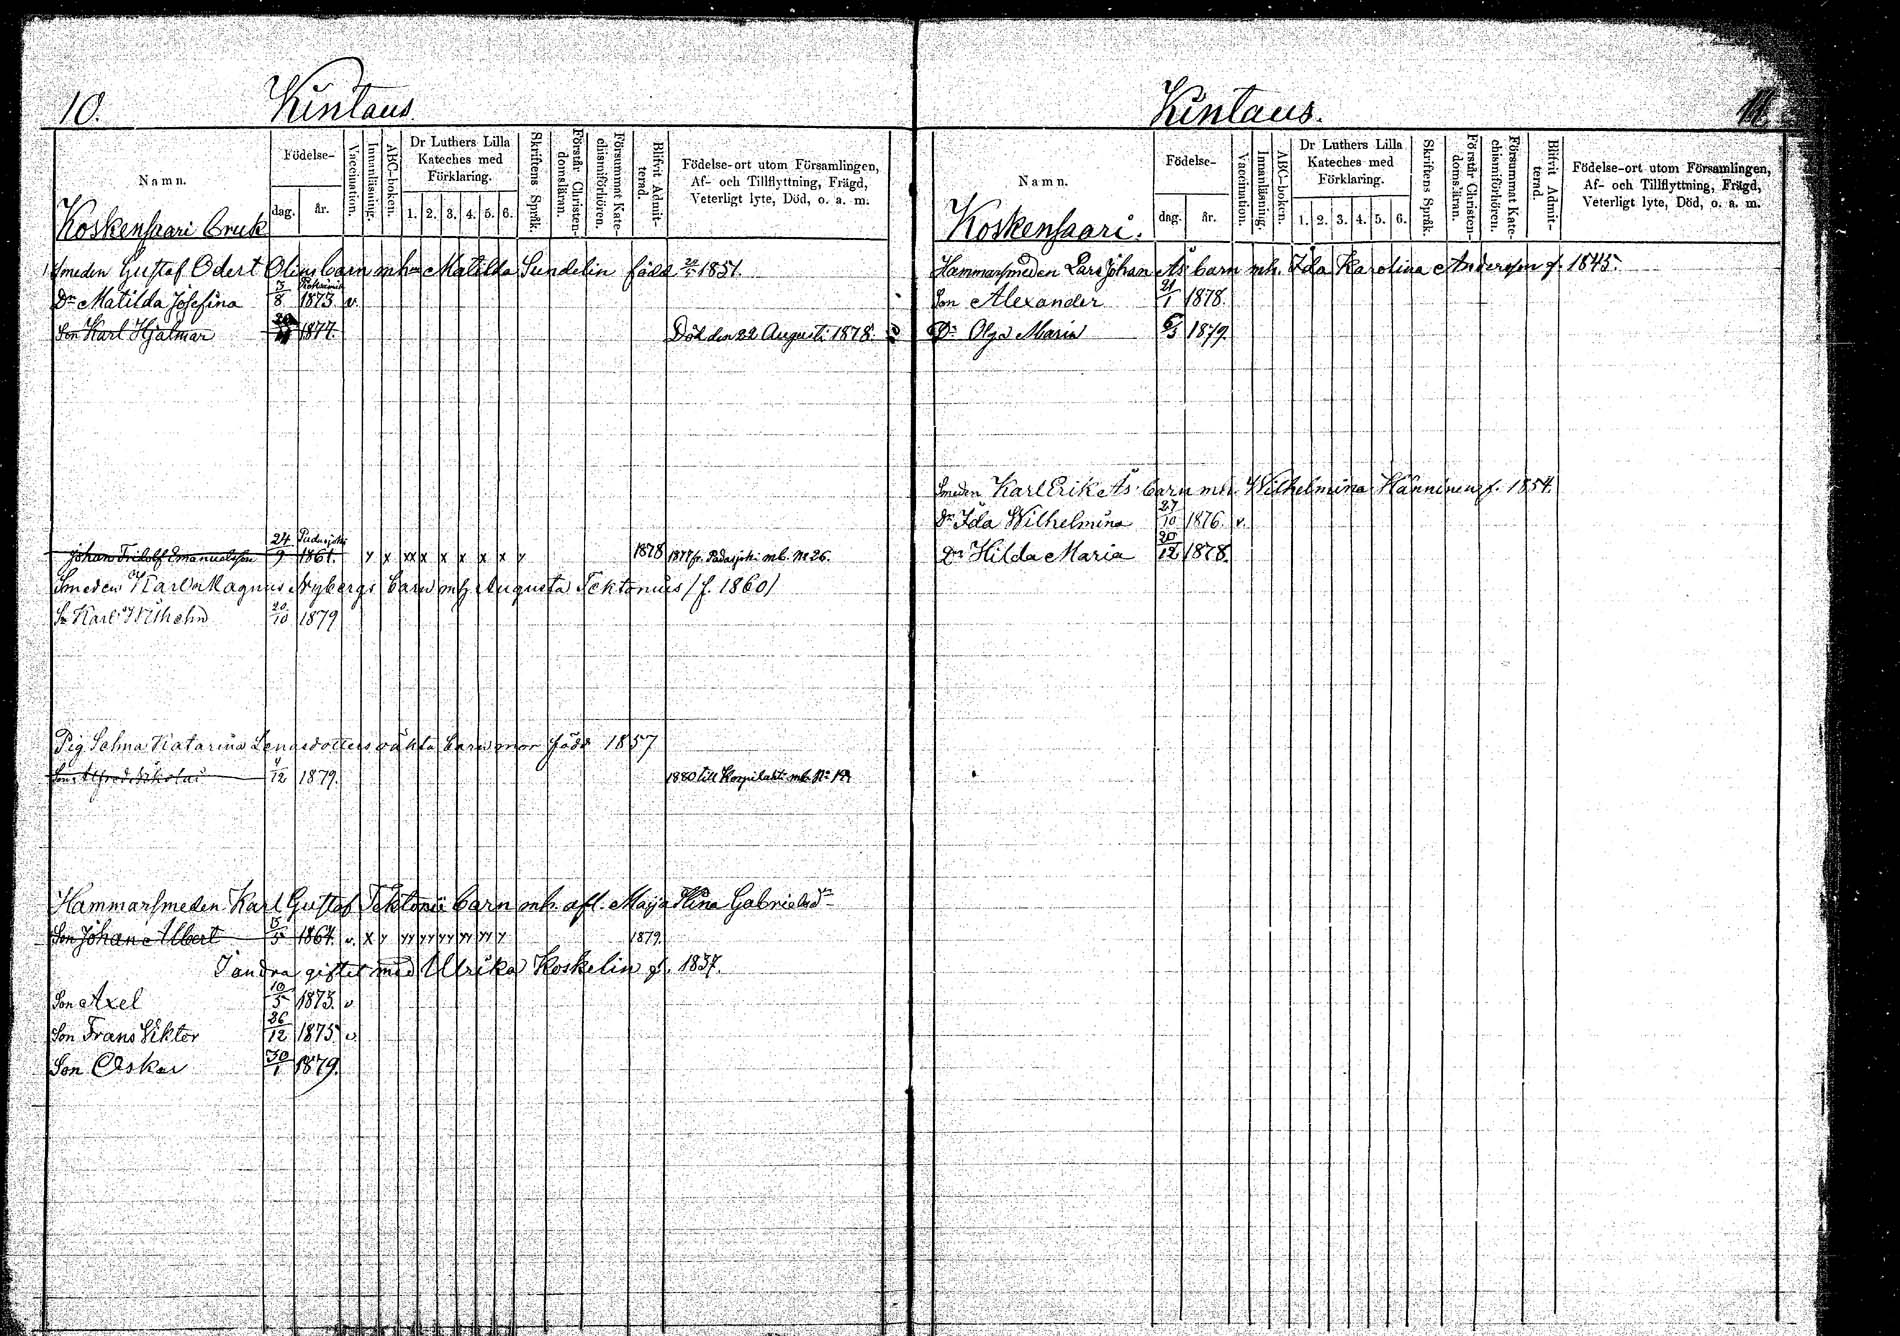 10.
Kintaus
Namn.
Födelse-
dag.
år.
Vaccination.
Innanläsning.
ABC-boken.
Dr Luthers Lilla Kateches med Förklaring.
1. 2. 3. 4. 5. 6.
Skriftens Språk.
Förstår Christendomsläran.
Försummat Katechismiförhören.
Blifvit Admitterad.
Födelse-ort utom Församlingen, Af- och Tillflyttning, Frägd, Veterligt lyte, Död, o. a. m.
Koskensaari Bruk
Smeden Gustaf Odert Olins barn mh Matilda Sundelin född 1851.
Dr Matilda Josefina 3/8 1873 v.
Son Karl Hjalmar 1877. Död den 22 Augusti 1878.
Johan Fridolf Emanuelsson 24/9 Padasjoki 1861. y x xx x x x x x y 1878 1877 fr. Padasjoki mb. No 26.
Smeden Karl Magnus Nybergs barn mh Augusta Tektonius / f. 1860 /
Sn Karl Wilhelm 20/10 1879
Pig. Selma Katarina Lenasdotters oäkta barn mor född 1857
Son Alfred Nikolai /12 1879. 1880 till Korpilahti mb. No
Hammarsmeden Karl Gustaf Tektonii barn mh. afl. Maija Stina Gabrielsdr
Son Johan Albert /5 1864. v. x y yy yy yy yy yy y 1879.
I andra giftet med Ulrika Koskelin f. 1837.
Son Axel 10/5 1873. v
Son Frans Viktor 26/12 1875 v.
Son Oskar 30/1 1879.
Kintaus.
11
Namn.
Födelse-
dag.
år.
Vaccination.
Innanläsning.
ABC-boken.
Dr Luthers Lilla Kateches med Förklaring.
1. 2. 3. 4. 5. 6.
Skriftens Språk.
Förstår Christendomsläran.
Försummat Katechismiförhören.
Blifvit Admitterad.
Födelse-ort utom Församlingen, Af- och Tillflyttning, Frägd, Veterligt lyte, Död, o. a. m.
Koskensaari.
Hammarsmeden Lars Johan Ås barn mh. Ida Karolina Andersson f. 1845.
Son Alexander 21/1 1878.
Dr Olga Maria 6/3 1879.
Smeden Karl Erik Ås barn mh. Wilhelmina Hänninen f. 1854.
Dr Ida Wilhelmina 27/10 1876. v.
Dr Hilda Maria 20/12 1878.